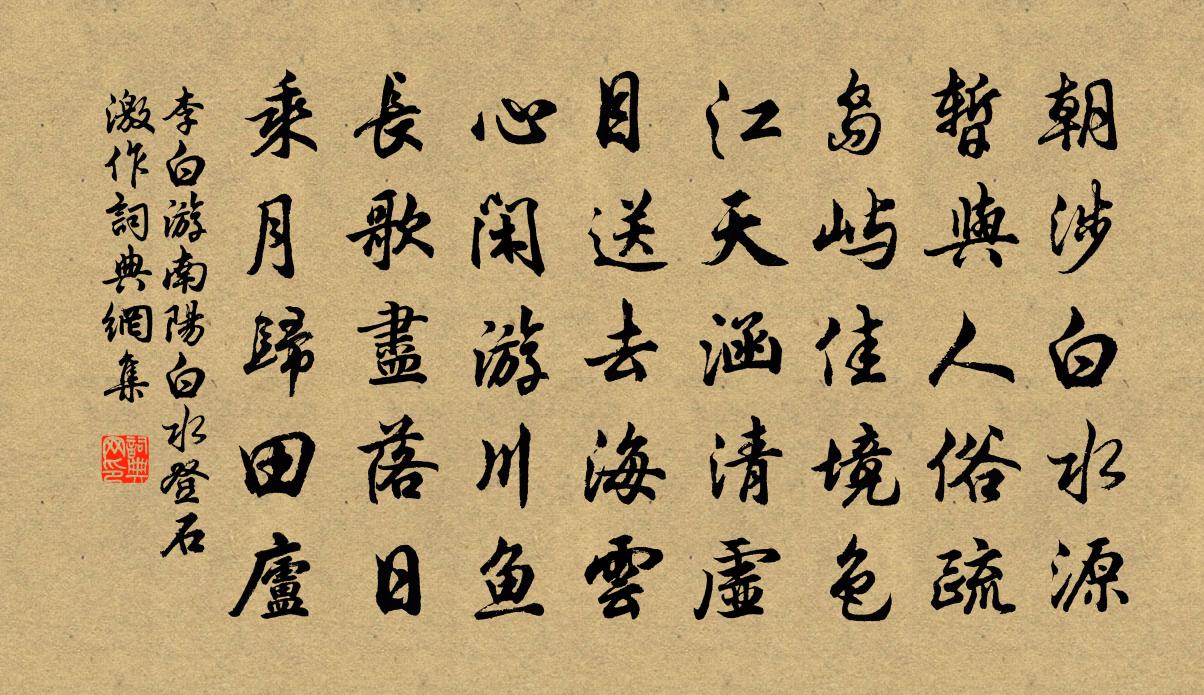 朝涉白水源
暫與人俗疏
島嶼佳境色
江天涵清虛
目送去海雲
心閑游川魚
長歌盡落日
乘月歸田廬
李白游南陽白水登石
激作詞典網集
詞典
网印